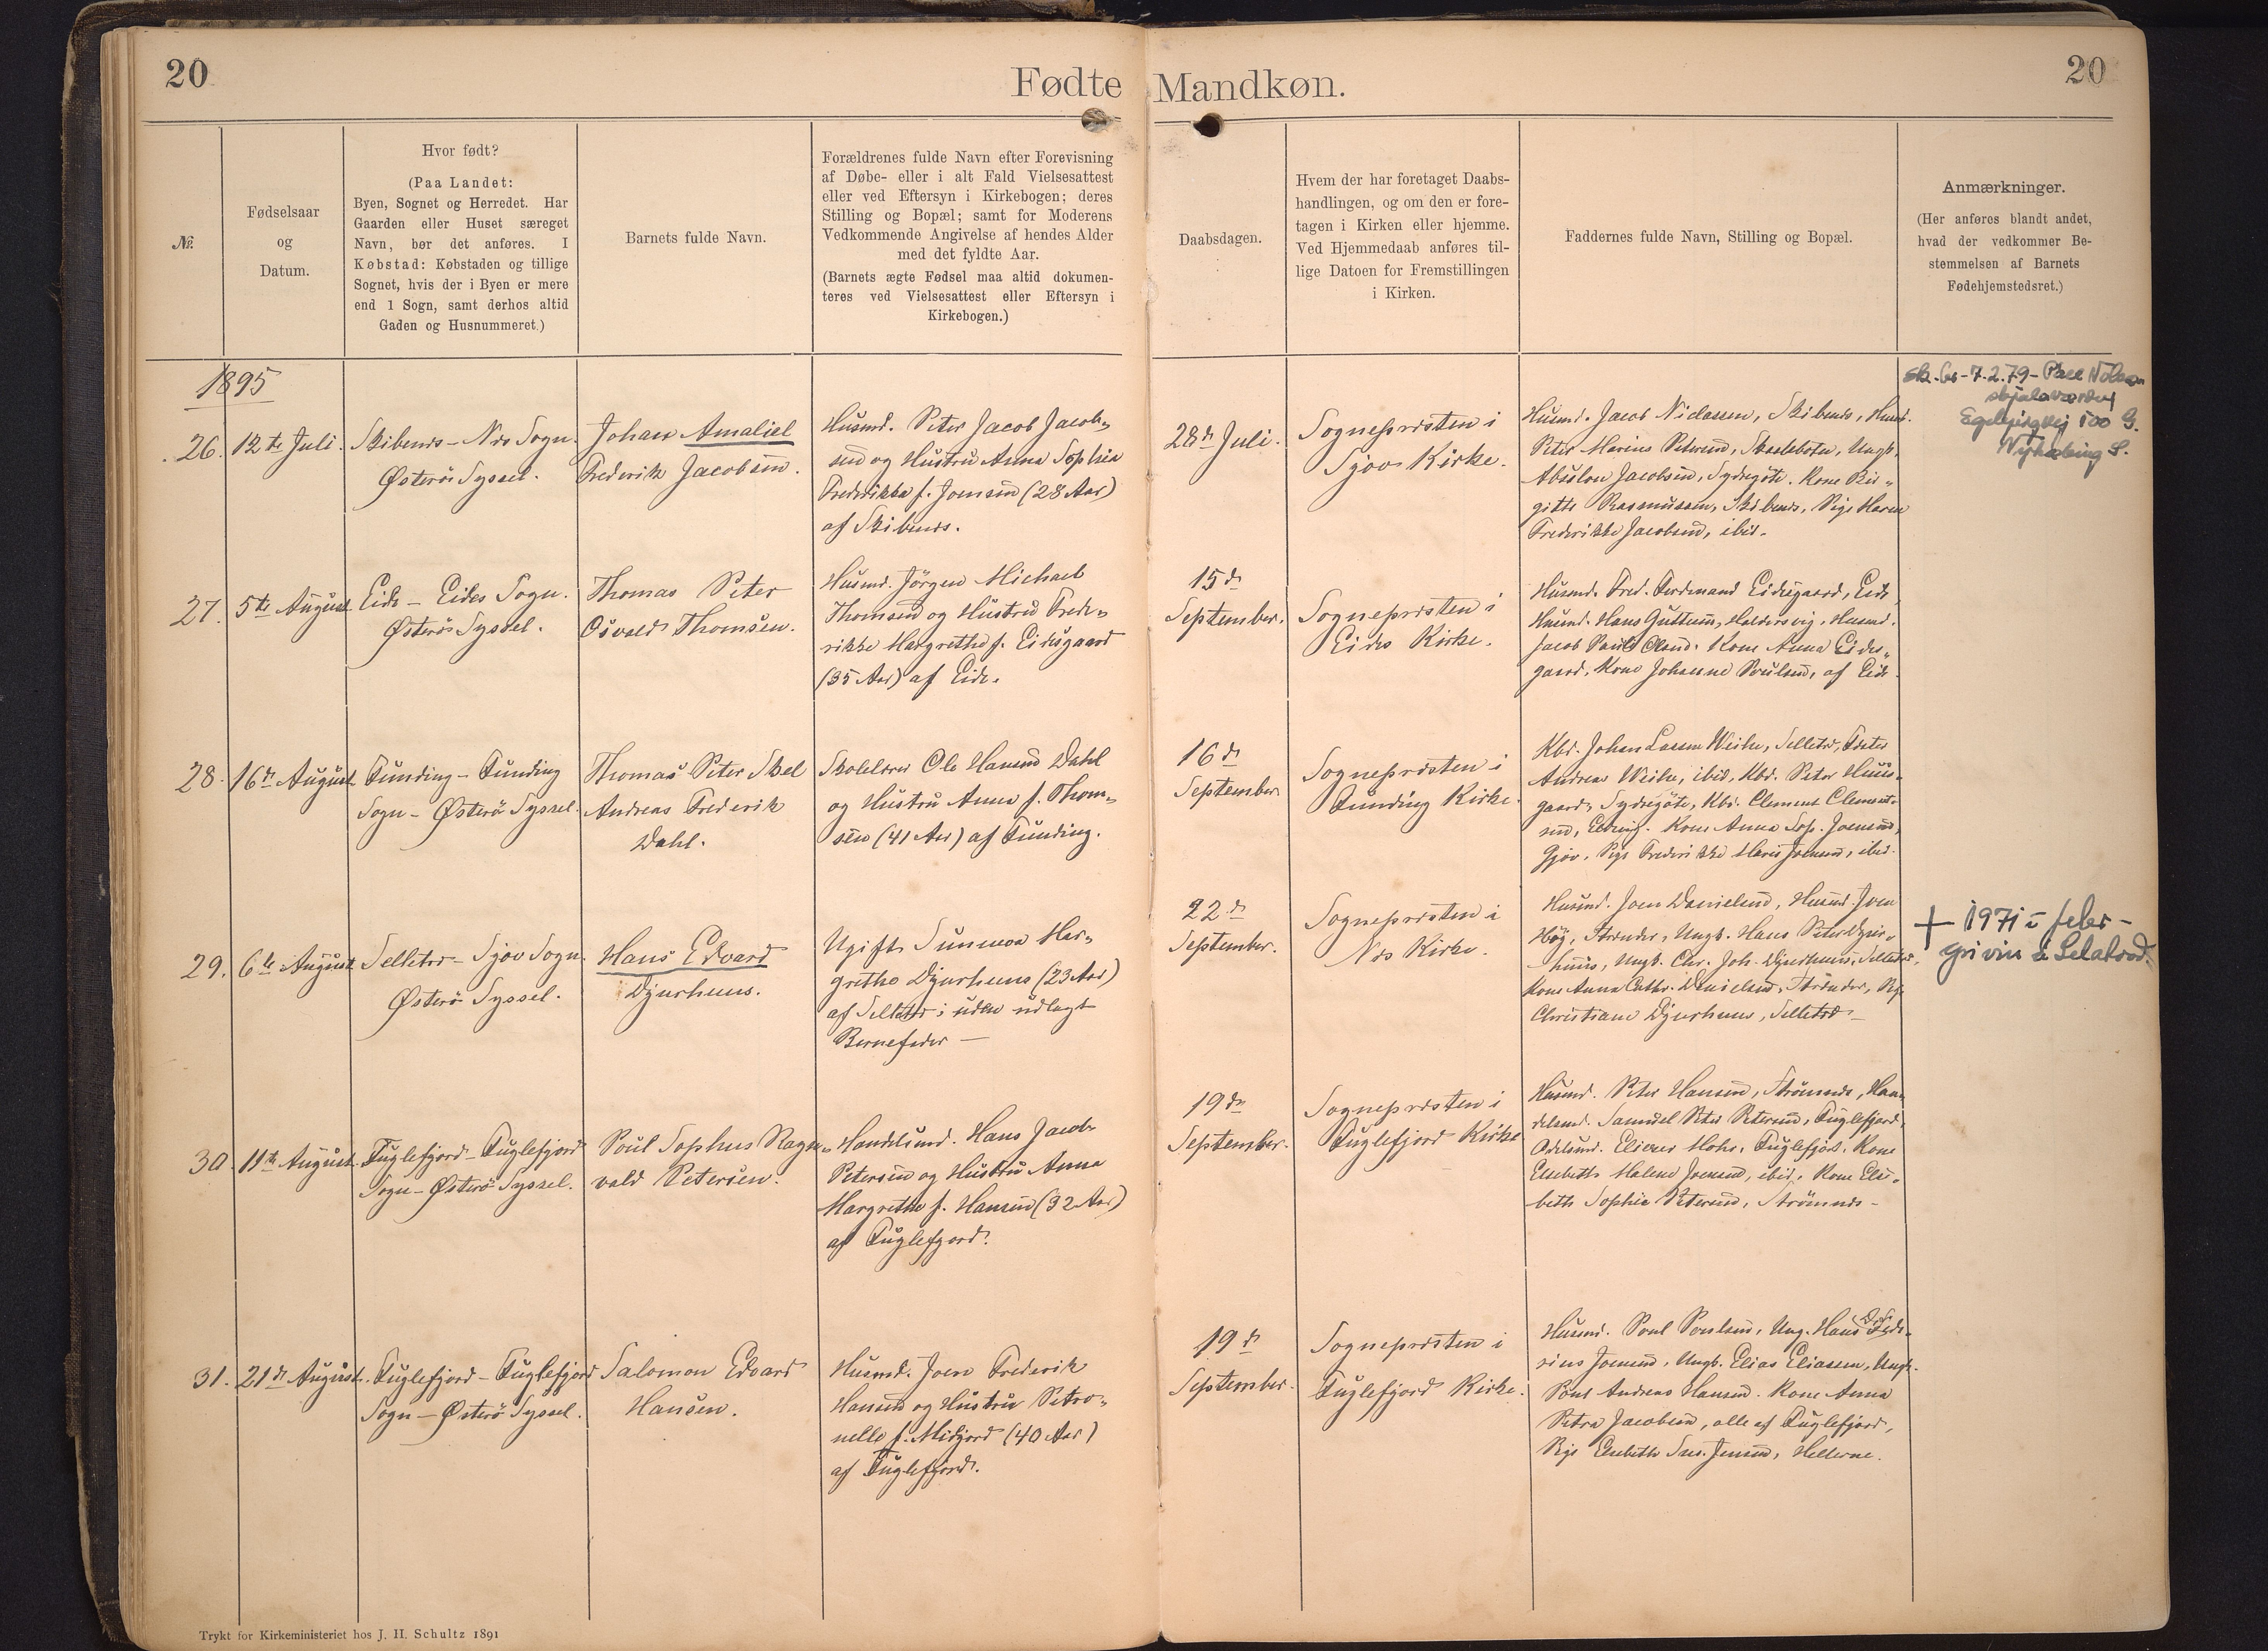 20
Fødte Mandkøn.
20
№.
Fødselsaar
og
Datum.
Hvor født?
(Paa Landet:
Byen, Sognet og Herredet. Har
Gaarden eller Huset særeget
Navn, bør det anføres. I
Købstad: Købstaden og tillige
Sognet, hvis der i Byen er mere
end 1 Sogn, samt derhos altid
Gaden og Husnummeret.)
Barnets fulde Navn.
Forældrenes fulde Navn efter Forevisning
af Døbe- eller i alt Fald Vielsesattest
eller ved Eftersyn i Kirkebogen; deres
Stilling og Bopæl; samt for Moderens
Vedkommende Angivelse af hendes Alder
med det fyldte Aar.
(Barnets ægte Fødsel maa altid dokumen-
teres ved Vielsesattest eller Eftersyn i
Kirkebogen.)
Daabsdagen.
Hvem der har foretaget Daabs-
handlingen, og om den er fore-
tagen i Kirken eller hjemme.
Ved Hjemmedaab anføres til-
lige Datoen for Fremstillingen
i Kirken.
Faddernes fulde Navn, Stilling og Bopæl.
Anmærkninger.
(Her anføres blandt andet,
hvad der vedkommer Be-
stemmelsen af Barnets
Fødehjemstedsret.)
1895
26.
12te Juli.
Skibenæs - Næs Sogn.
Østerø Syssel.
Johan Amaliel
Frederik Jacobsen.
Husmd. Peter Jacob Jacob-
sen og Hustru Anna Sophia
Frederikka f. Joensen (28 Aar)
af Skibenæs.
28de Juli.
Sognepræsten i
Sjovs Kirke.
Husmd. Jacob Niclassen, Skibenæs, Husmd.
Peter Marius Petersen, Skaalebotn, Ungk.
Absolon Jacobsen, Sydregöte. Kone Bir-
gitte Rasmussen, Skibenæs, Pige Maren
Frederikke Jacobsen, ibid.
7.2.79
Egebjergvej 100 G.
Nykøbing S.
27.
5te August
Eide - Eides Sogn.
Østerø Syssel.
Thomas Peter
Osvald Thomsen.
Husmd. Jörgen Michael
Thomsen og Hustru Frede-
rikke Margrethe f. Eidesgaard
(35 Aar) af Eide.
15de
September.
Sognepræsten i
Eides Kirke.
Husmd. Fred. Ferdinand Eidesgaard, Eide,
Husmd. Hans Guttesen, Haldersvig, Husmd.
Jacob Paul Olsen. Kone Anna Eides-
gaard, Kone Johanne Poulsen, af Eide.
28.
16de August.
Funding - Funding
Sogn - Østerø Syssel.
Thomas Peter Skel
Andreas Frederik
Dahl.
Skolelærer Ole Hansen Dahl
og Hustru Anna f. Thom-
sen (41 Aar) af Funding.
16de
September
Sognepræsten i
Funding Kirke.
Kbd. Johan Lassen Weihe, Selletræ,
Andreas Weihe, ibid, Kbd. Peter Huus-
gaard, Sydregöte, Kbd. Clement Clement-
sen, Eldvig. Kone Anna Sop. Joensen,
Gjov, Pige Frederikke Marie Joensen, ibid.
29.
6te August
Selletræ - Sjov Sogn.
Østerø Syssel.
Hans Edvard
Djurhuus.
Ugift Sunneva Mar-
grethe Djurhuus (23 Aar)
af Selletræ; uden udlagt
Barnefader -
22de
September.
Sognepræsten i
Næs Kirke.
Husmd. Joen Danielsen, Husmd. Joen
Høg, Strænder, Ungk. Hans Peter Djur-
huus, Ungk. Chr. Joh. Djurhuus, Selletræ,
Kone Anna Cathr. Danielsen, Strænder, Pige
Christiane Djurhuus, Selletræ -
+ 1971 i febr -
grivin á Selatrað.
30.
11te August.
Fuglefjord - Fuglefjord
Sogn - Østerø Syssel.
Poul Sophus Ragn-
vald Petersen.
Handelsmd. Hans Jacob
Petersen og Hustru Anna
Margrethe f. Hansen (32 Aar)
af Fuglefjord.
19de
September.
Sognepræsten i
Fuglefjord Kirke
Husmd. Peter Hansen, Strömnæs, Han-
delsmd. Samuel Peter Petersen, Fuglefjord,
Odelsmd. Elieser Mohr, Fuglefjord. Kone
Elsebeth Malene Joensen, ibid, Kone Elis-
beth Sophie Petersen, Strömnæs -
31.
21de August.
Fuglefjord - Fuglefjord
Sogn - Østerø Syssel.
Salomon Edvard
Hansen.
Husmd. Joen Frederik
Hansen og Hustru Petro-
nelle f. Midjord (40 Aar)
af Fuglefjord.
19de
September.
Sognepræsten i
Fuglefjord Kirke.
Husmd. Poul Poulsen, Ung. Hans
Joensen, Ungk. Elias Eliassen, Ungk.
Poul Andreas Hansen. Kone Anna
Petra Jacobsen, alle af Fuglefjord,
Pige Elsebeth Sus. Jensen, Hellerne.
Trykt for Kirkeministeriet hos J. H. Schultz 1891